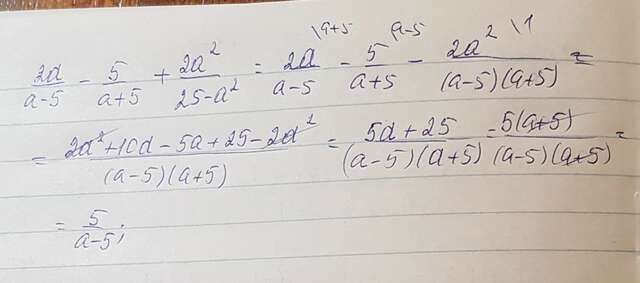 2a/(a-5) - 5/(a+5) + 2a²/(25-a²) = 2a\a+5/(a-5) - 5\a-5/(a+5) - 2a²\1/((a-5)(a+5)) =
= (2a²+10a-5a+25-2a²)/((a-5)(a+5)) = (5a+25)/((a-5)(a+5)) = 5(a+5)/((a-5)(a+5)) =
= 5/(a-5);